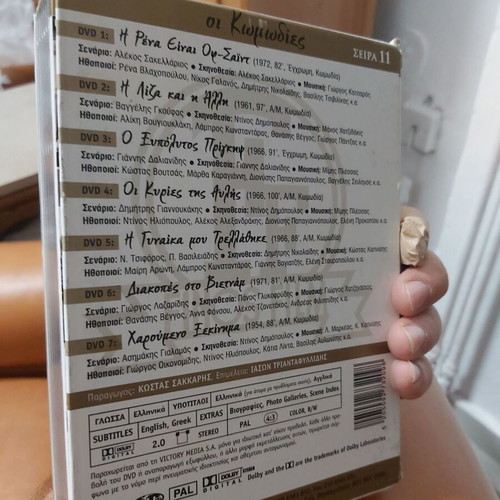 οι Κωμωδίες
ΣΕΙΡΑ 11
DVD 1: Η Ρένα Είναι Οφ-Σάϊντ (1972, 82', Έγχρωμη, Κωμωδία)
Σενάριο: Αλέκος Σακελλάριος • Σκηνοθεσία: Αλέκος Σακελλάριος • Μουσική: Γιώργος Κατσαρός
Ηθοποιοί: Ρένα Βλαχοπούλου, Νίκος Γαλανός, Δημήτρης Νικολαΐδης, Βασίλης Τσιβιλίκας κ.α.
DVD 2: Η Λίζα και η Άλλη (1961, 97', Α/Μ, Κωμωδία)
Σενάριο: Βαγγέλης Γκούφας • Σκηνοθεσία: Ντίνος Δημόπουλος • Μουσική: Μάνος Χατζιδάκις
Ηθοποιοί: Αλίκη Βουγιουκλάκη, Λάμπρος Κωνσταντάρας, Θανάσης Βέγγος, Γιώργος Πάντζας κ.α.
DVD 3: Ο Εξυπόλυτος Πρίγκηψ (1966, 91', Έγχρωμη, Κωμωδία)
Σενάριο: Γιάννης Δαλιανίδης • Σκηνοθεσία: Γιάννης Δαλιανίδης • Μουσική: Μίμης Πλέσσας
Ηθοποιοί: Κώστας Βουτσάς, Μάρθα Καραγιάννη, Διονύσης Παπαγιαννόπουλος, Βαγγέλης Σειληνός κ.α.
DVD 4: Οι Κυρίες της Αυλής (1966, 100', Α/Μ, Κωμωδία)
Σενάριο: Δημήτρης Γιαννουκάκης • Σκηνοθεσία: Ντίνος Δημόπουλος • Μουσική: Μίμης Πλέσσας
Ηθοποιοί: Ντίνος Ηλιόπουλος, Αλέκος Αλεξανδράκης, Διονύσης Παπαγιαννόπουλος, Ελένη Προκοπίου κ.α.
DVD 5: Η Γυναίκα μου Τρελλάθηκε (1966, 88', Α/Μ, Κωμωδία)
Σενάριο: Ν. Τσιφόρος, Π. Βασιλειάδης • Σκηνοθεσία: Δημήτρης Νικολαΐδης • Μουσική: Κώστας Καπνίσης
Ηθοποιοί: Μαίρη Αρώνη, Λάμπρος Κωνσταντάρας, Γιάννης Βογιατζής, Ελένη Σταυροπούλου κ.α.
DVD 6: Διακοπές στο Βιετνάμ (1971, 81', Α/Μ, Κωμωδία)
Σενάριο: Γιώργος Λαζαρίδης • Σκηνοθεσία: Πάνος Γλυκοφρύδης • Μουσική: Γιώργος Χατζηνάσιος
Ηθοποιοί: Θανάσης Βέγγος, Άννα Φόνσου, Αλέκος Τζανετάκος, Ανδρέας Φιλιππίδης κ.α.
DVD 7: Χαρούμενο Ξεκίνημα (1954, 88', Α/Μ, Κωμωδία)
Σενάριο: Ασημάκης Γιαλαμάς • Σκηνοθεσία: Ντίνος Δημόπουλος • Μουσική: Λ. Μαρκέας, Κ. Καπνίσης
Ηθοποιοί: Γιώργος Οικονομίδης, Ντίνος Ηλιόπουλος, Κάτια Λίντα, Βασίλης Αυλωνίτης κ.α.
Παραγωγος: ΚΩΣΤΑΣ ΣΑΚΚΑΡΗΣ, Επιμέλεια: ΙΑΣΩΝ ΤΡΙΑΝΤΑΦΥΛΛΙΔΗΣ
ΓΛΩΣΣΑ Ελληνικά ΥΠΟΤΙΤΛΟΙ Ελληνικά (για άτομα με προβλήματα ακοής), Αγγλικά
SUBTITLES English, Greek EXTRAS Βιογραφίες, Photo Galleries, Scene Index
DOLBY DIGITAL 2.0 STEREO PAL 4:3 COLOR, B/W
Παραχωρείται από τη VICTORY MEDIA S.A. μόνο για ιδιωτική κατ' οίκον χρήση. Κάθε άλλη προβολή
DVD PAL DOLBY DIGITAL Dolby and the DD are the trademark of Dolby Laboratories